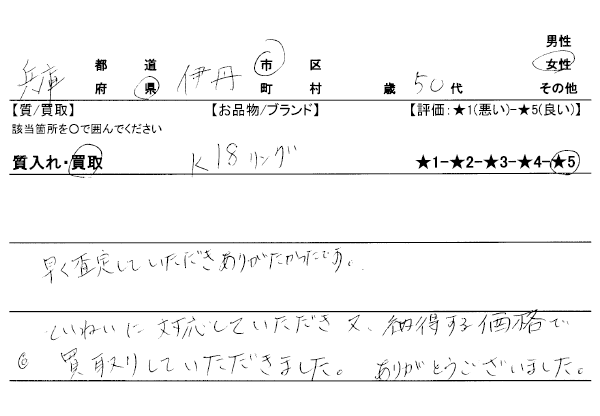 男性
兵庫 都 道 伊丹 市 区 女性
府 県 町 村 歳 50代 その他
【質/買取】 【お品物/ブランド】 【評価:★1(悪い)-★5(良い)】
該当箇所を○で囲んでください
質入れ・買取 K18リング ★1-★2-★3-★4-★5
早く査定していただきありがたかったです。
ていねいに対応していただき又、納得する価格で
買取りしていただきました。 ありがとうございました。